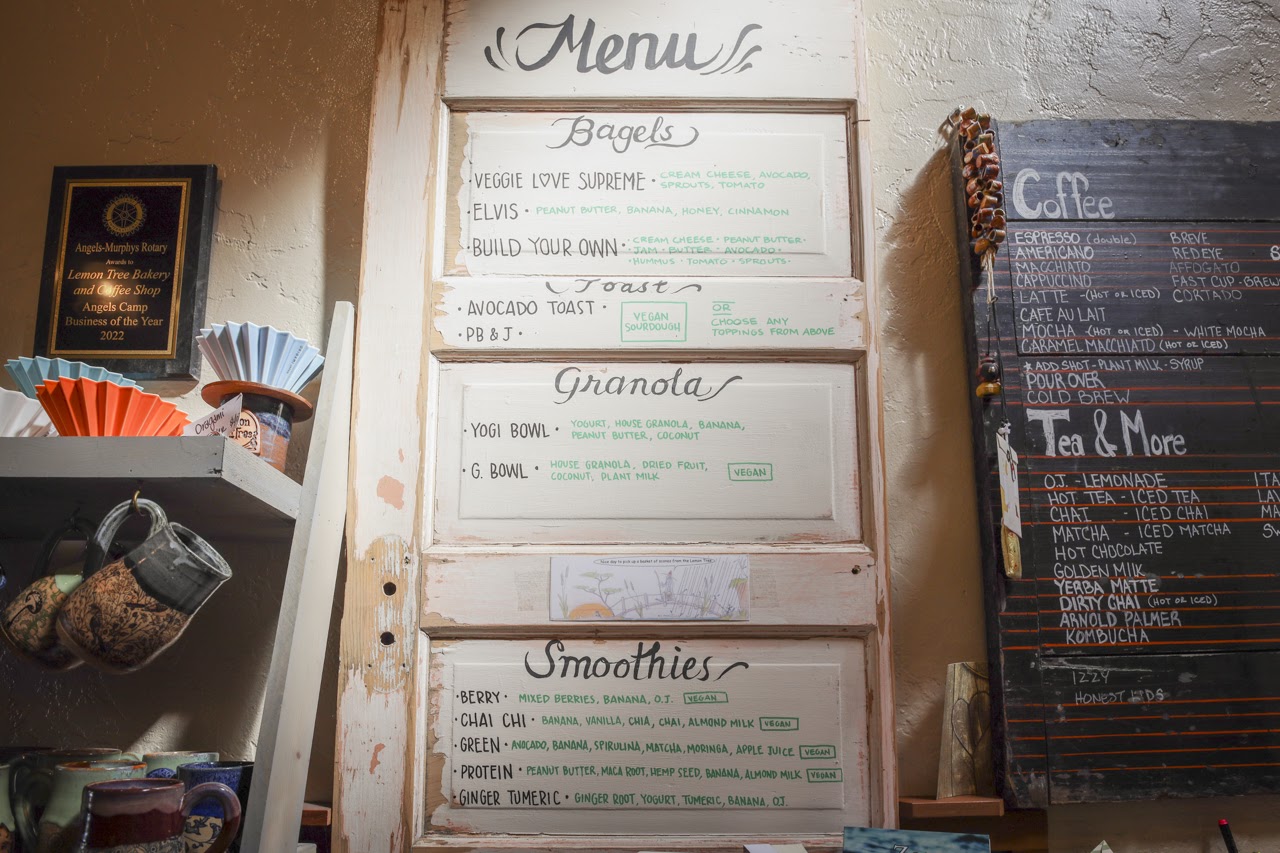 Angels-Murphys Rotary
Awards to
Lemon Tree Bakery
and Coffee Shop
Angels Camp
Business of the Year
2022
Menu
Bagels
·VEGGIE LOVE SUPREME· CREAM CHEESE, AVOCADO,
SPROUTS, TOMATO
·ELVIS· PEANUT BUTTER, BANANA, HONEY, CINNAMON
·BUILD YOUR OWN· ·CREAM CHEESE·PEANUT BUTTER·
·JAM·BUTTER·AVOCADO·
·HUMMUS·TOMATO·SPROUTS·
Toast
·AVOCADO TOAST·
·PB & J·
VEGAN
SOURDOUGH
OR
CHOOSE ANY
TOPPINGS FROM ABOVE
Granola
·YOGI BOWL· YOGURT, HOUSE GRANOLA, BANANA,
PEANUT BUTTER, COCONUT
·G. BOWL· HOUSE GRANOLA, DRIED FRUIT,
COCONUT, PLANT MILK
VEGAN
Smoothies
·BERRY· MIXED BERRIES, BANANA, O.J. VEGAN
·CHAI CHI· BANANA, VANILLA, CHIA, CHAI, ALMOND MILK VEGAN
·GREEN· AVOCADO, BANANA, SPIRULINA, MATCHA, MORINGA, APPLE JUICE VEGAN
·PROTEIN· PEANUT BUTTER, MACA ROOT, HEMP SEED, BANANA, ALMOND MILK VEGAN
·GINGER TUMERIC· GINGER ROOT, YOGURT, TUMERIC, BANANA, OJ.
Coffee
ESPRESSO (double)
AMERICANO
MACCHIATO
CAPPUCCINO
LATTE -(HOT OR ICED)
CAFE AU LAIT
MOCHA (HOT OR ICED) - WHITE MOCHA
CARAMEL MACCHIATO (HOT OR ICED)
BREVE
REDEYE
AFFOGATO
FAST CUP-BREW
CORTADO
*ADD SHOT-PLANT MILK-SYRUP
POUR OVER
COLD BREW
Tea & More
O.J. - LEMONADE
HOT TEA - ICED TEA
CHAI - ICED CHAI
MATCHA - ICED MATCHA
HOT CHOCOLATE
GOLDEN MILK
YERBA MATTE
DIRTY CHAI (HOT OR ICED)
ARNOLD PALMER
KOMBUCHA
HONEST KIDS